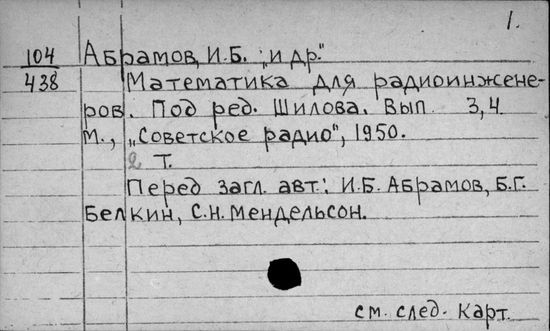 1.
104 Абрамов, И.Б. "и др."
438 Математика для радиоинжене-
ров. Под ред. Шилова. Вып. 3,4.
М., „Советское радио", 1950.
2 т.
Перед загл. авт.: И.Б. Абрамов, Б.Г.
Белкин, С.Н. Мендельсон.
см. след. карт.